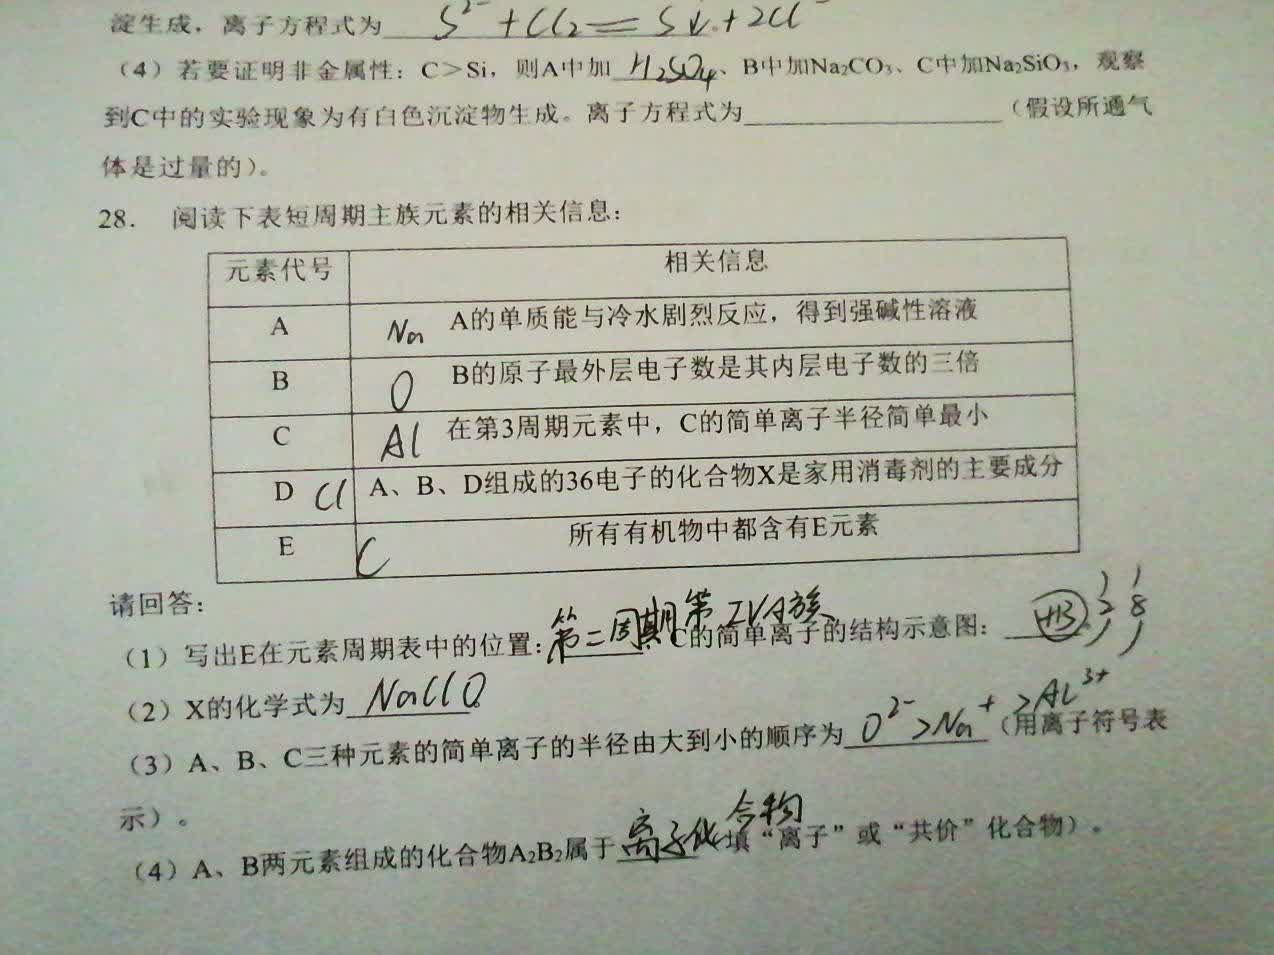 淀生成，离子方程式为 S²⁻+Cl₂=S↓+2Cl⁻
（4）若要证明非金属性：C＞Si，则A中加 H₂SO₄、B中加Na₂CO₃、C中加Na₂SiO₃，观察
到C中的实验现象为有白色沉淀物生成。离子方程式为____________（假设所通气
体是过量的）。
28. 阅读下表短周期主族元素的相关信息：
元素代号 相关信息
A Na A的单质能与冷水剧烈反应，得到强碱性溶液
B O B的原子最外层电子数是其内层电子数的三倍
C Al 在第3周期元素中，C的简单离子半径简单最小
D Cl A、B、D组成的36电子的化合物X是家用消毒剂的主要成分
E C 所有有机物中都含有E元素
请回答：
（1）写出E在元素周期表中的位置：第二周期第IVA族 C的简单离子的结构示意图：+13 2 8
（2）X的化学式为 NaClO
（3）A、B、C三种元素的简单离子的半径由大到小的顺序为 O²⁻>Na⁺>Al³⁺（用离子符号表
示）。
（4）A、B两元素组成的化合物A₂B₂属于 离子化合物 填“离子”或“共价”化合物）。